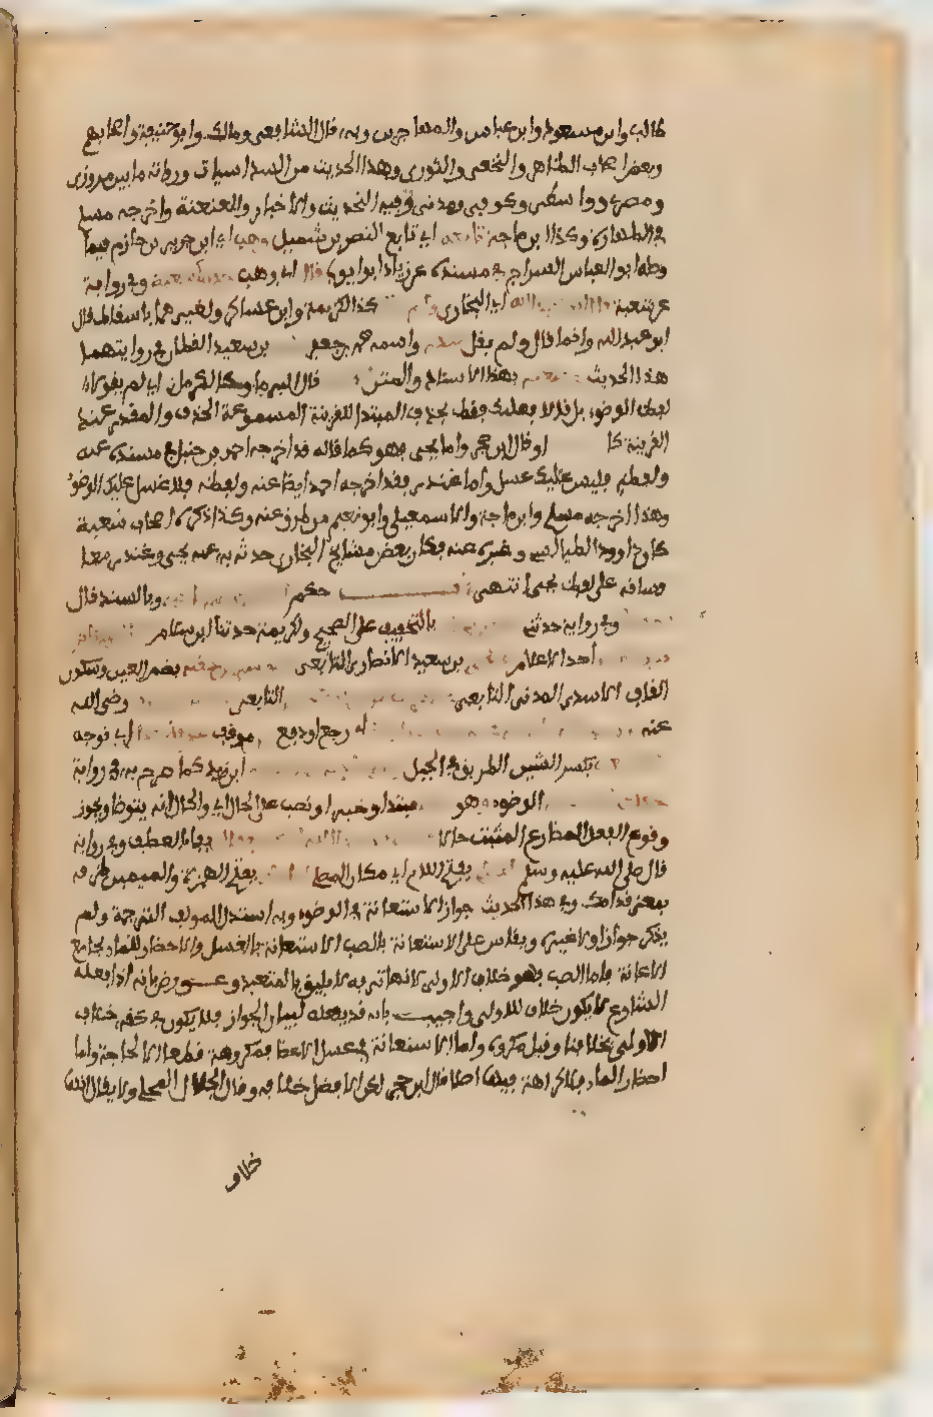 طالب وابن مسعود وابن عباس والمهاجرين وبه قال الشافعي ومالك وابو حنيفة واصحابهم
وبعض اصحاب الظاهر والنخعي والثوري وهذا الحديث من السداسيات ورواته ما بين مروزي
ومصري وواسطي وكوفي ومدني وفيه التحديث والاخبار والعنعنة واخرجه مسلم
في الطهارة وكذا ابن ماجة تابعه اي تابع النضر بن شميل وهب اي ابن جرير بن حازم فيما
وصله ابو العباس السراج في مسنده عن زياد ابن ايوب قال اي وهب وفي رواية
عن شعبة قال ابو عبد الله اي البخاري كذا لكريمة وابن عساكر ولغيرهما باسقاط قال
ابو عبد الله وانما قال ولم يقل واسمه محمد بن جعفر بن سعيد القطان في روايتهما
هذا الحديث بهذا الاسناد والمتن قال البرماوي كالكرماني اي لم يقولا
لفظ الوضوء بل قالا فعليك فقط بحذف المبتدا للقرينة المسموغة للحذف والمقدر عند
القرينة كا او قال ابن حجر واما يحيى فهو كما قاله فقد اخرجه احمد بن حنبل في مسنده عنه
ولفظه فليس عليك غسل واما غندر فقد اخرجه احمد ايضا عنه ولفظه فلا غسل عليك الوضوء
وهذا اخرجه مسلم وابن ماجة والاسمعيلي وابو نعيم من طرق عنه وكذا ذكره اصحاب شعبة
كابي داوود الطيالسي وغيره عنه فكان بعض مشايخ البخاري حدثه به عن يحيى وغندر معا
وساقه على لفظ يحيى انتهى حكم وبالسند قال
وفي رواية حدثني بالتخفيف على الصحيح ولكريمة حدثنا ابن سلام
احد الاعلام بن سعيد الانصاري التابعي بضم العين وسكون
القاف الاسدي المدني التابعي التابعي رضي الله
عنه اي رجع او دفع موقف اي توجه
بكسر الشين الطريق في الجبل ابن زيد كما صرح به في رواية
الوضوء وهو مبتدا وخبر او نصب على الحال اي والحال انه يتوضا ويجوز
وقوع الفعل المضارع المثبت حالا بفاء العطف وفي رواية
قال صلى الله عليه وسلم بفتح اللام اي مكان المصلى بفتح الهمزة والميم ظرف
بمعنى قدامك وفي هذا الحديث جواز الاستعانة في الوضوء وبه استدل المولف للترجمة ولم
يذكر جوازا ولا غيره ويقاس على الاستعانة بالصب الاستعانة بالغسل والاحضار للماء بجامع
الاعانة فاما الصب فهو خلاف الاولى لانها ترفه لا يليق بالمتعبد وعورض بانه اذا فعله
الشارع لا يكون خلاف الاولى واجيب بانه قد يفعله لبيان الجواز فلا يكون في حقه خلاف
الاولى بخلافنا وقيل مكروه واما الاستعانة في غسل الاعضا فمكروهة قطعا الا لحاجة واما
احضار الماء فلا كراهة فيه اصلا قال ابن حجر لكن الافضل خلافه وقال الجلال المحلي ولا يقال انها
خلاف